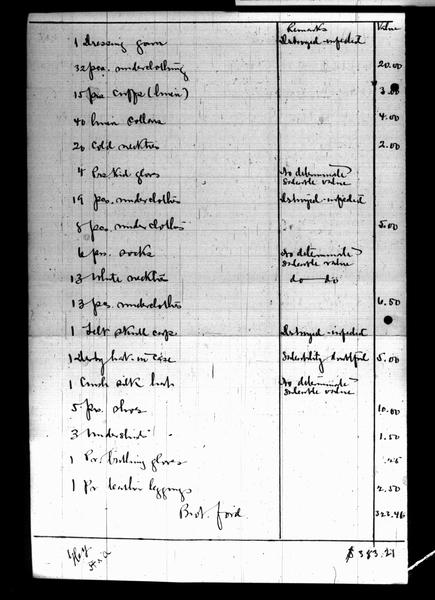 Remarks Value
1 Dressing gown Destroyed-infected
32 pcs. underclothing 20.00
15 prs cuffs (linen) 3.00
40 linen collars 4.00
20 cold neckties 2.00
4 Prs Kid gloves No determinate Saleable value
19 pcs. underclothes Destroyed-infected
8 pcs. underclothes 5.00
6 prs. socks No determinate Saleable value
13 White neckties do do
13 pcs. underclothes 6.50
1 Felt skull cap Destroyed-infected
1 Derby hat in case Saleability doubtful 5.00
1 Crush silk hat No determinate Saleable value
5 prs. shoes 10.00
3 Undershirts 1.50
1 Pr. bathing gloves .25
1 Pr leather leggings 2.50
Brot. ford. 323.46
$383.21